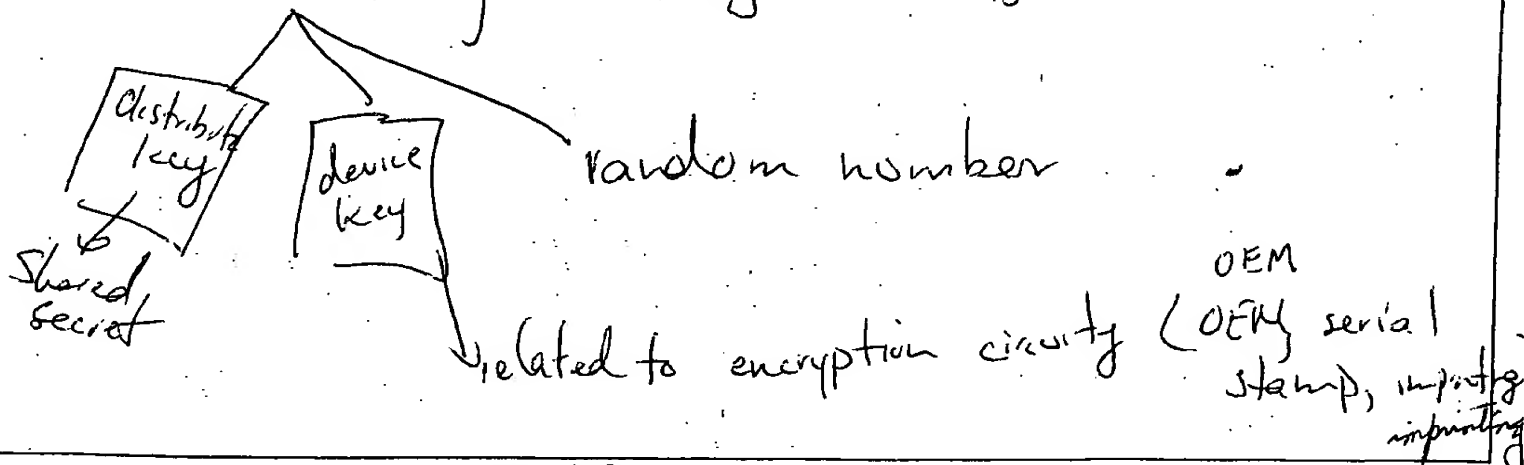 distribute
key
device
key
random number
Shared
secret
OEM
related to encryption circuity (OEM, serial
stamp, imprinting
imprinting